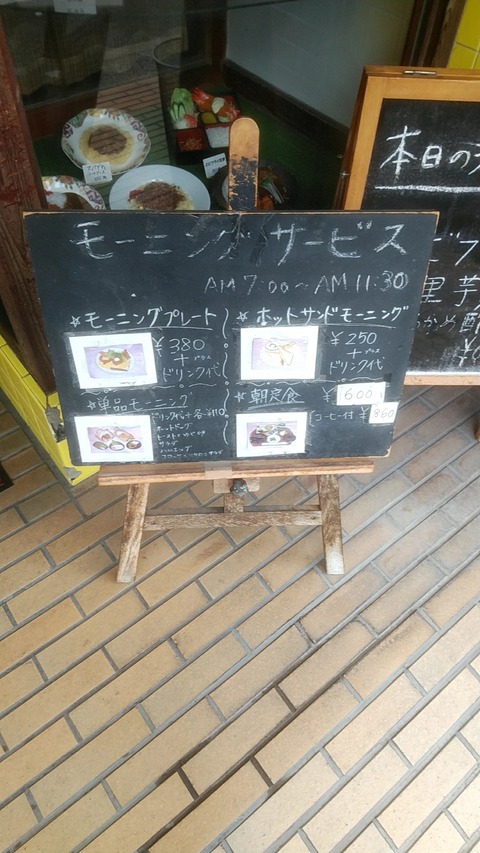 モーニングサービス
AM 7:00〜AM 11:30
☆モーニングプレート
¥380
+プラス
ドリンク代
☆ホットサンドモーニング
¥250
+プラス
ドリンク代
☆単品モーニング
ドリンク代+各¥110
ホットドッグ
サラダ
☆朝定食 ¥600
コーヒー付 ¥860
本日の
里芋